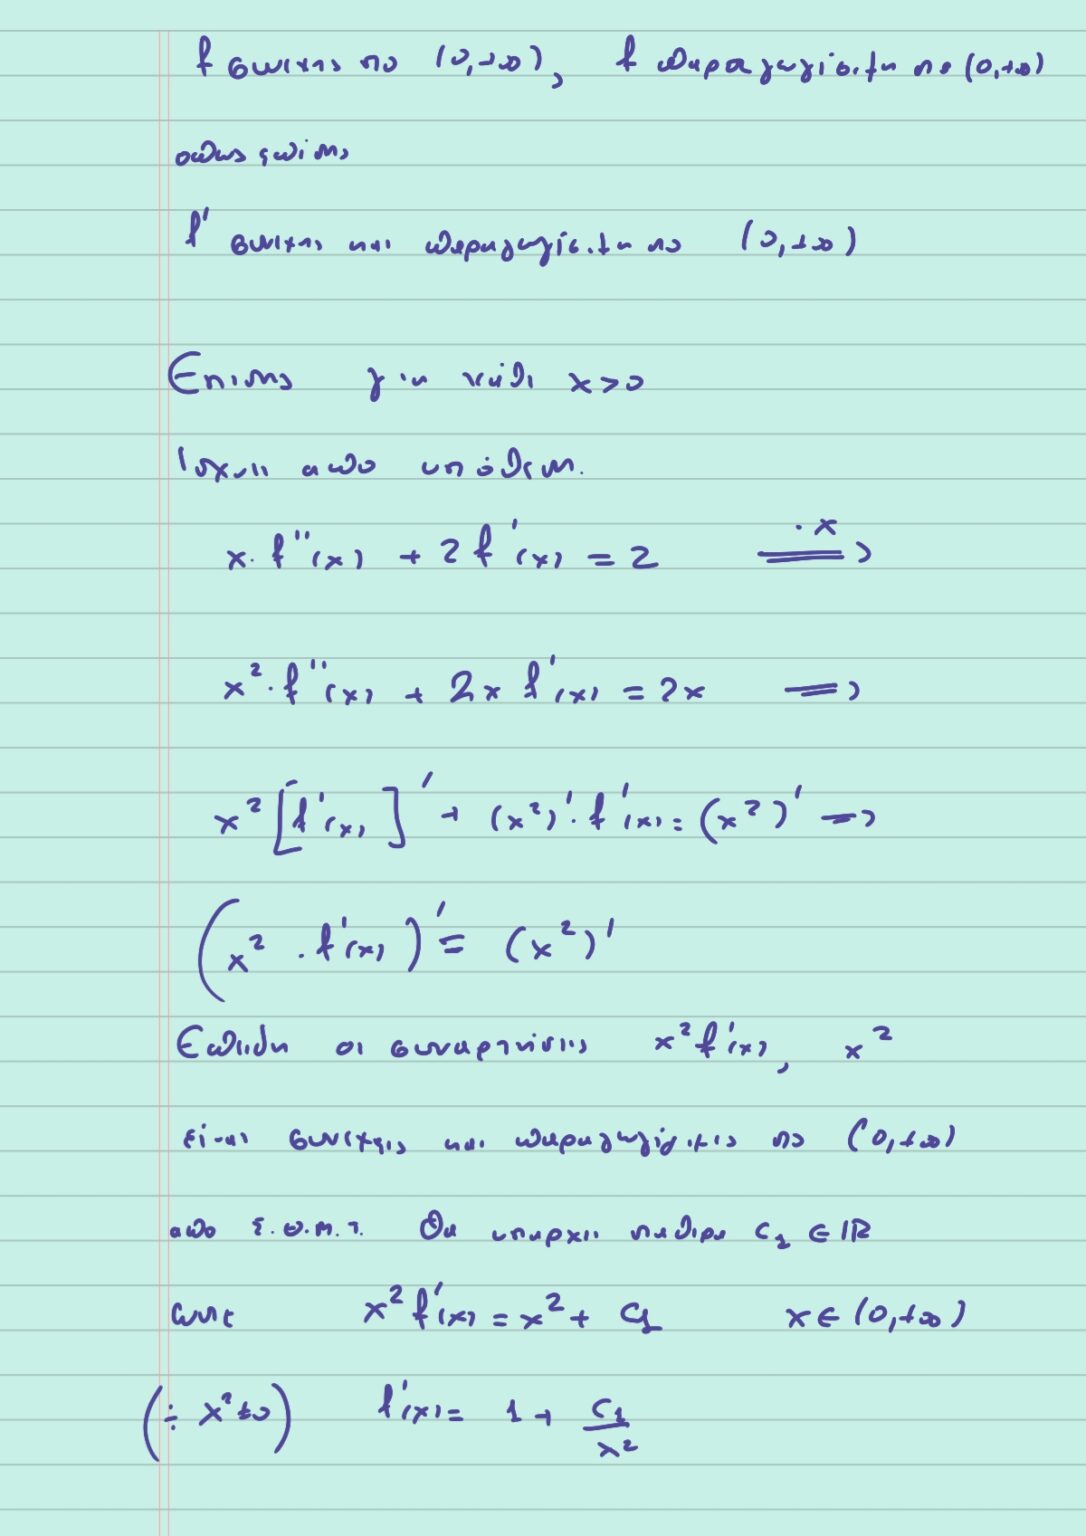 f συνεχης στο (0,+∞), f παραγωγίσιμη στο (0,+∞)
οπως επίσης
f' συνεχης και παραγωγίσιμη στο (0,+∞)
Επισης για κάθε x>0
Ισχυει απο υπόθεση.
x·f''(x) + 2f'(x) = 2 ⇒ (·x)
x²·f''(x) + 2x f'(x) = 2x ⇒
x²[f'(x)]' + (x²)'·f'(x) = (x²)' ⇒
(x²·f'(x))' = (x²)'
Επειδη οι συναρτήσεις x²f'(x), x²
είναι συνεχεις και παραγωγίσιμες στο (0,+∞)
απο Σ.Θ.Μ.Τ. Θα υπαρχει σταθερα c₁ ∈ ℝ
ωστε x²f'(x) = x² + c₁ x∈(0,+∞)
(÷ x²≠0) f'(x) = 1 + c₁/x²